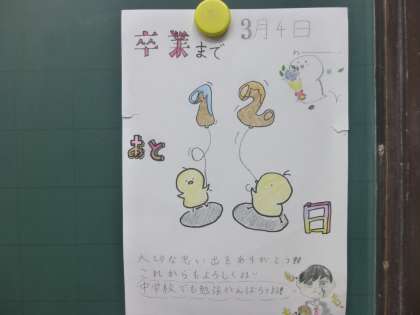 3月4日
卒業まで
あと
12
日
大切な思い出をありがとう!!
これからもよろしくね♡
中学校でも勉強がんばろうね!!